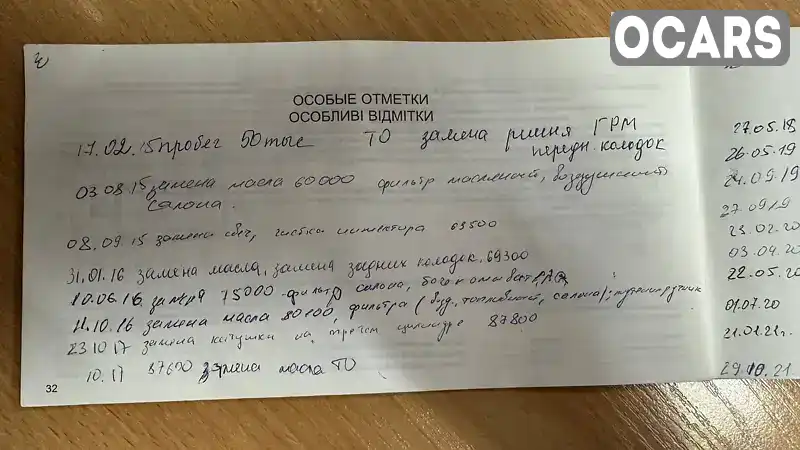 OCARS
ОСОБЫЕ ОТМЕТКИ
ОСОБЛИВІ ВІДМІТКИ
17.02.15 пробег 50 тыс ТО замена ремня ГРМ
передн. колодок
03.08.15 замена масла 60000 фильтр масляный, воздушный
салона.
08.09.15 замена свеч, чистка инжектора 63500
31.01.16 замена масла, замена задних колодок, 69300
10.06.16 75000 фильтр салона,
11.10.16 замена масла 80100, фильтра (возд., топливный, салона),
23 10 17 замена катушки на третем цилиндре 87800
10.17 87600 замена масла ТО
32
27.05.18
26.05.19
24.09.19
27.09.19
23.02.20
03.04.20
22.05.20
01.07.20
21.01.21г.
29.10.21